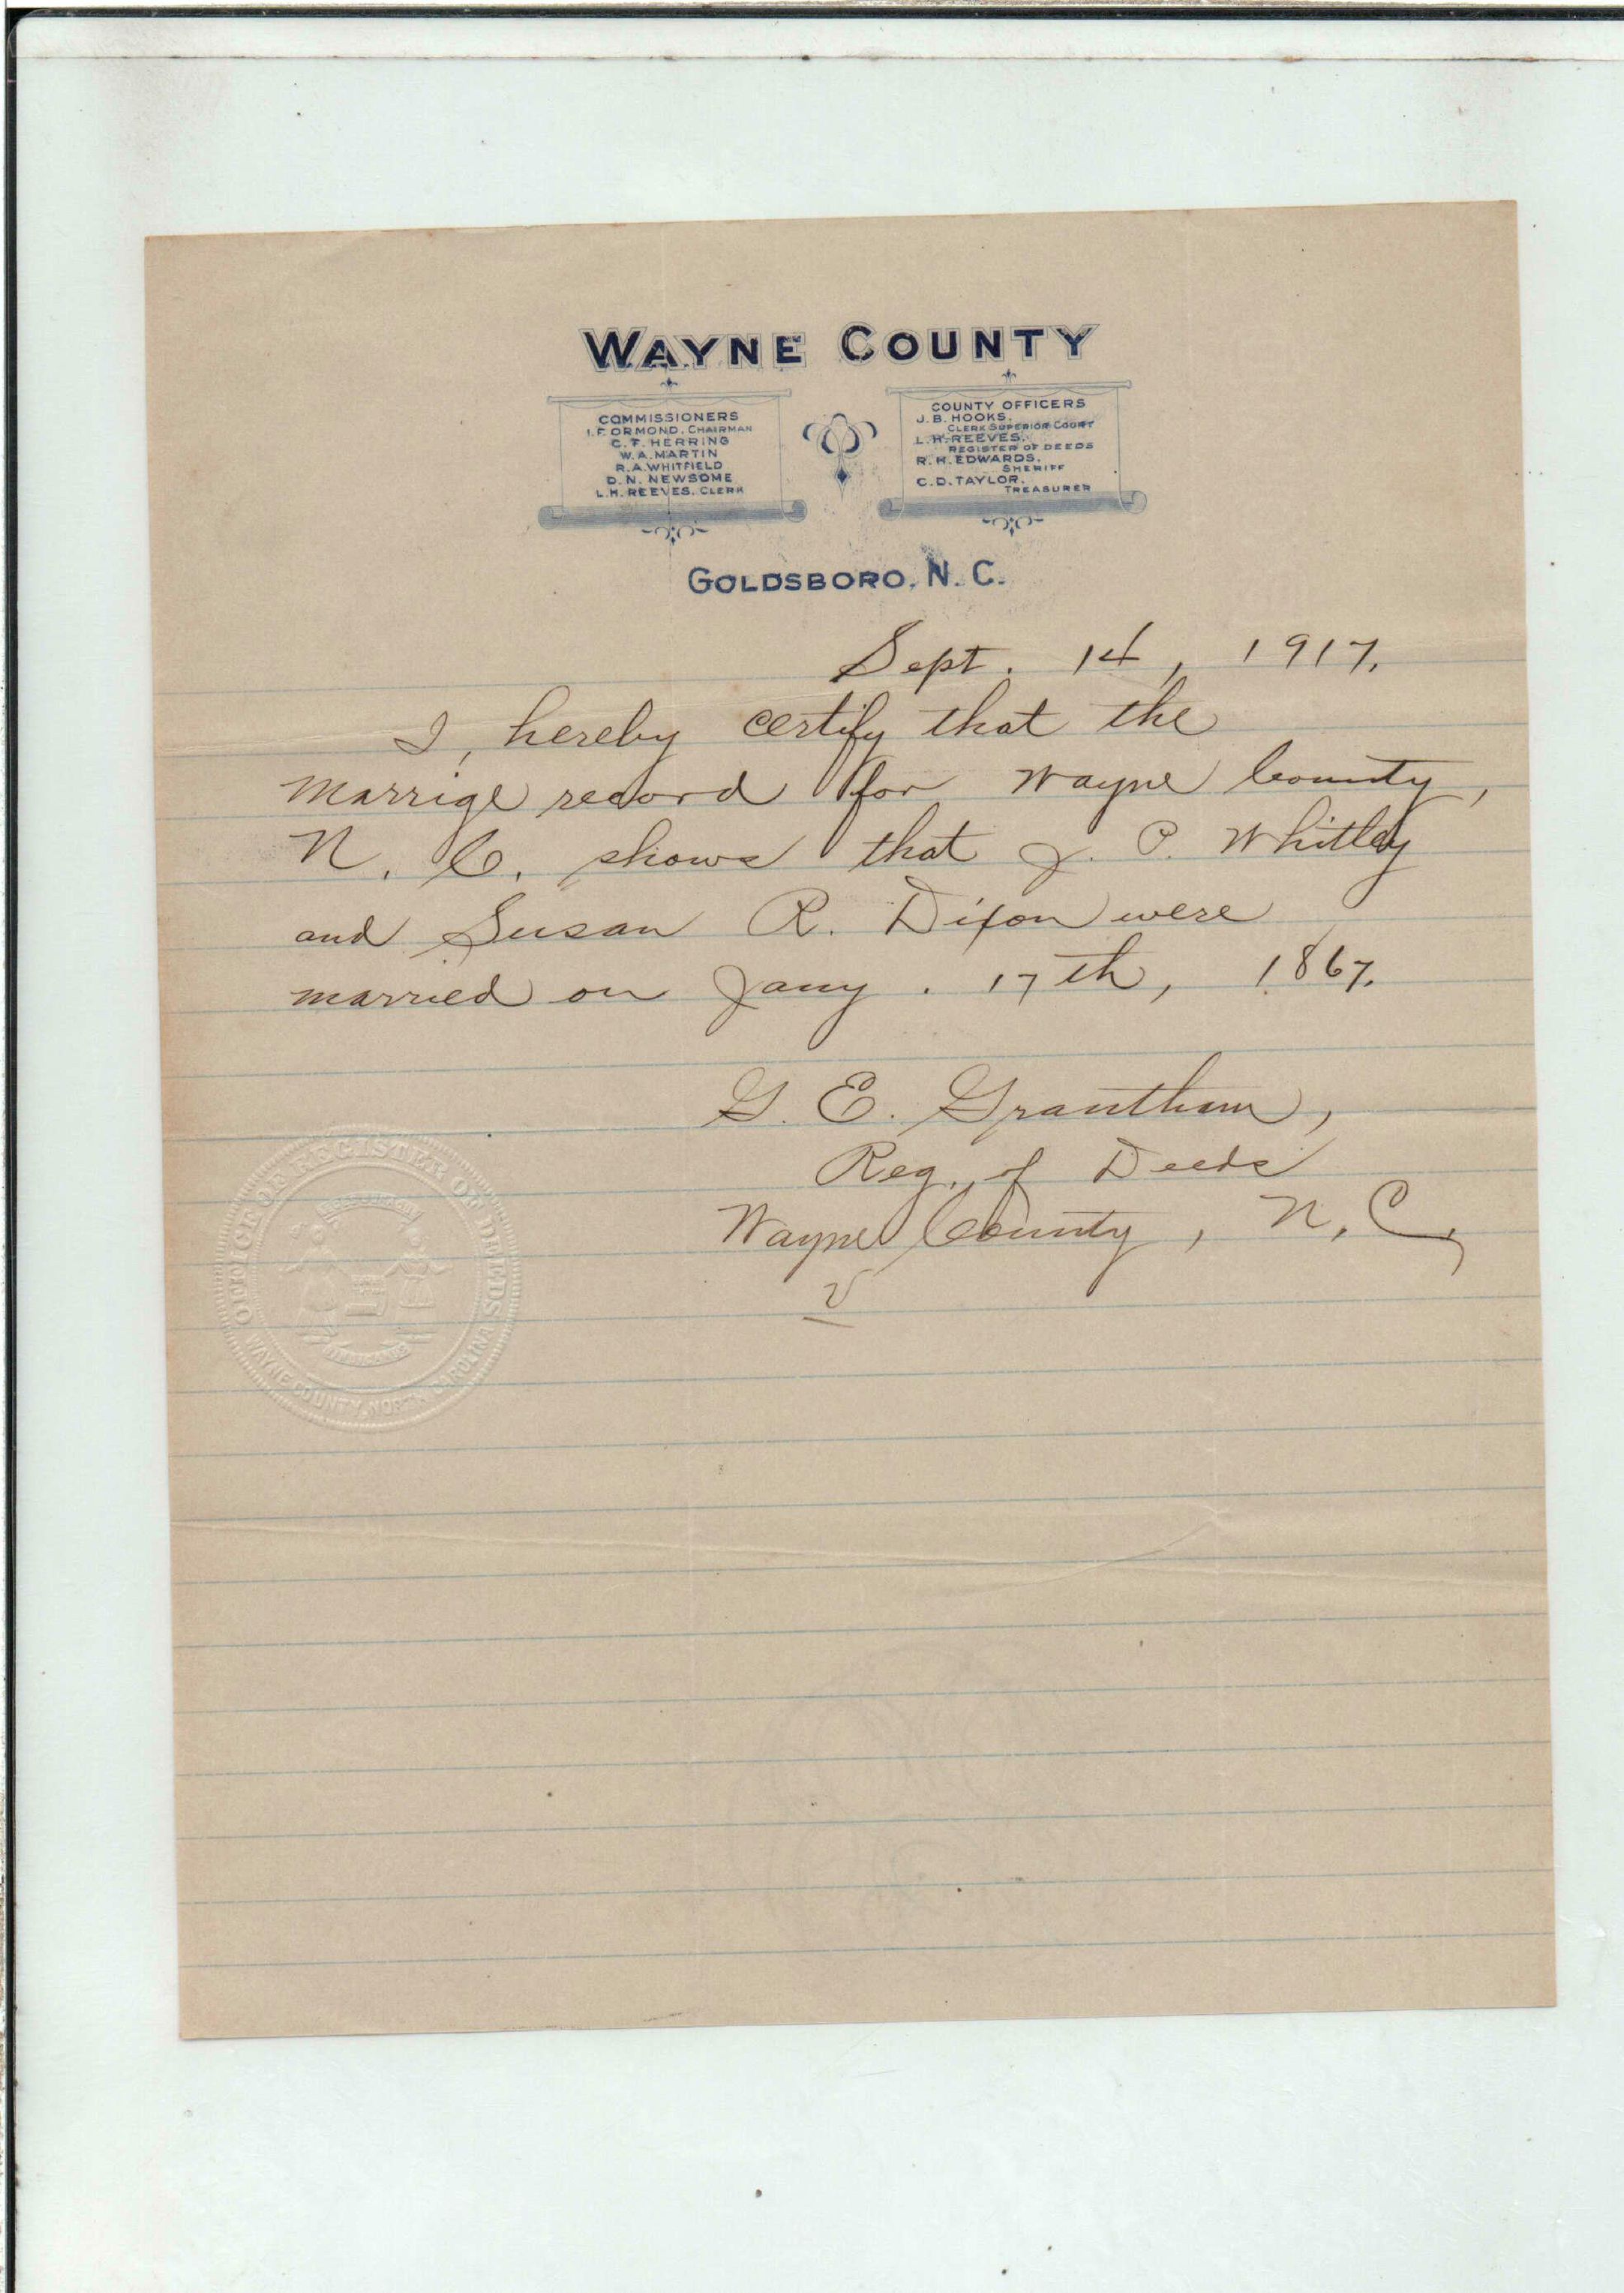 WAYNE COUNTY
COMMISSIONERS
I.F. ORMOND, CHAIRMAN
C.T. HERRING
W.A. MARTIN
R.A. WHITFIELD
D.N. NEWSOME
L.H. REEVES, CLERK
COUNTY OFFICERS
J.B. HOOKS,
CLERK SUPERIOR COURT
L.H. REEVES,
REGISTER OF DEEDS
R.H. EDWARDS,
SHERIFF
C.D. TAYLOR,
TREASURER
GOLDSBORO, N. C.
Sept. 14, 1917.
I, hereby certify that the
marrige record for Wayne County,
N. C. shows that J. P. Whitley
and Susan R. Dixon were
married on Jany. 17th, 1867.
G. E. Grantham,
Reg. of Deeds
Wayne County, N. C.
OFFICE OF REGISTER OF DEEDS
WAYNE COUNTY, NORTH CAROLINA